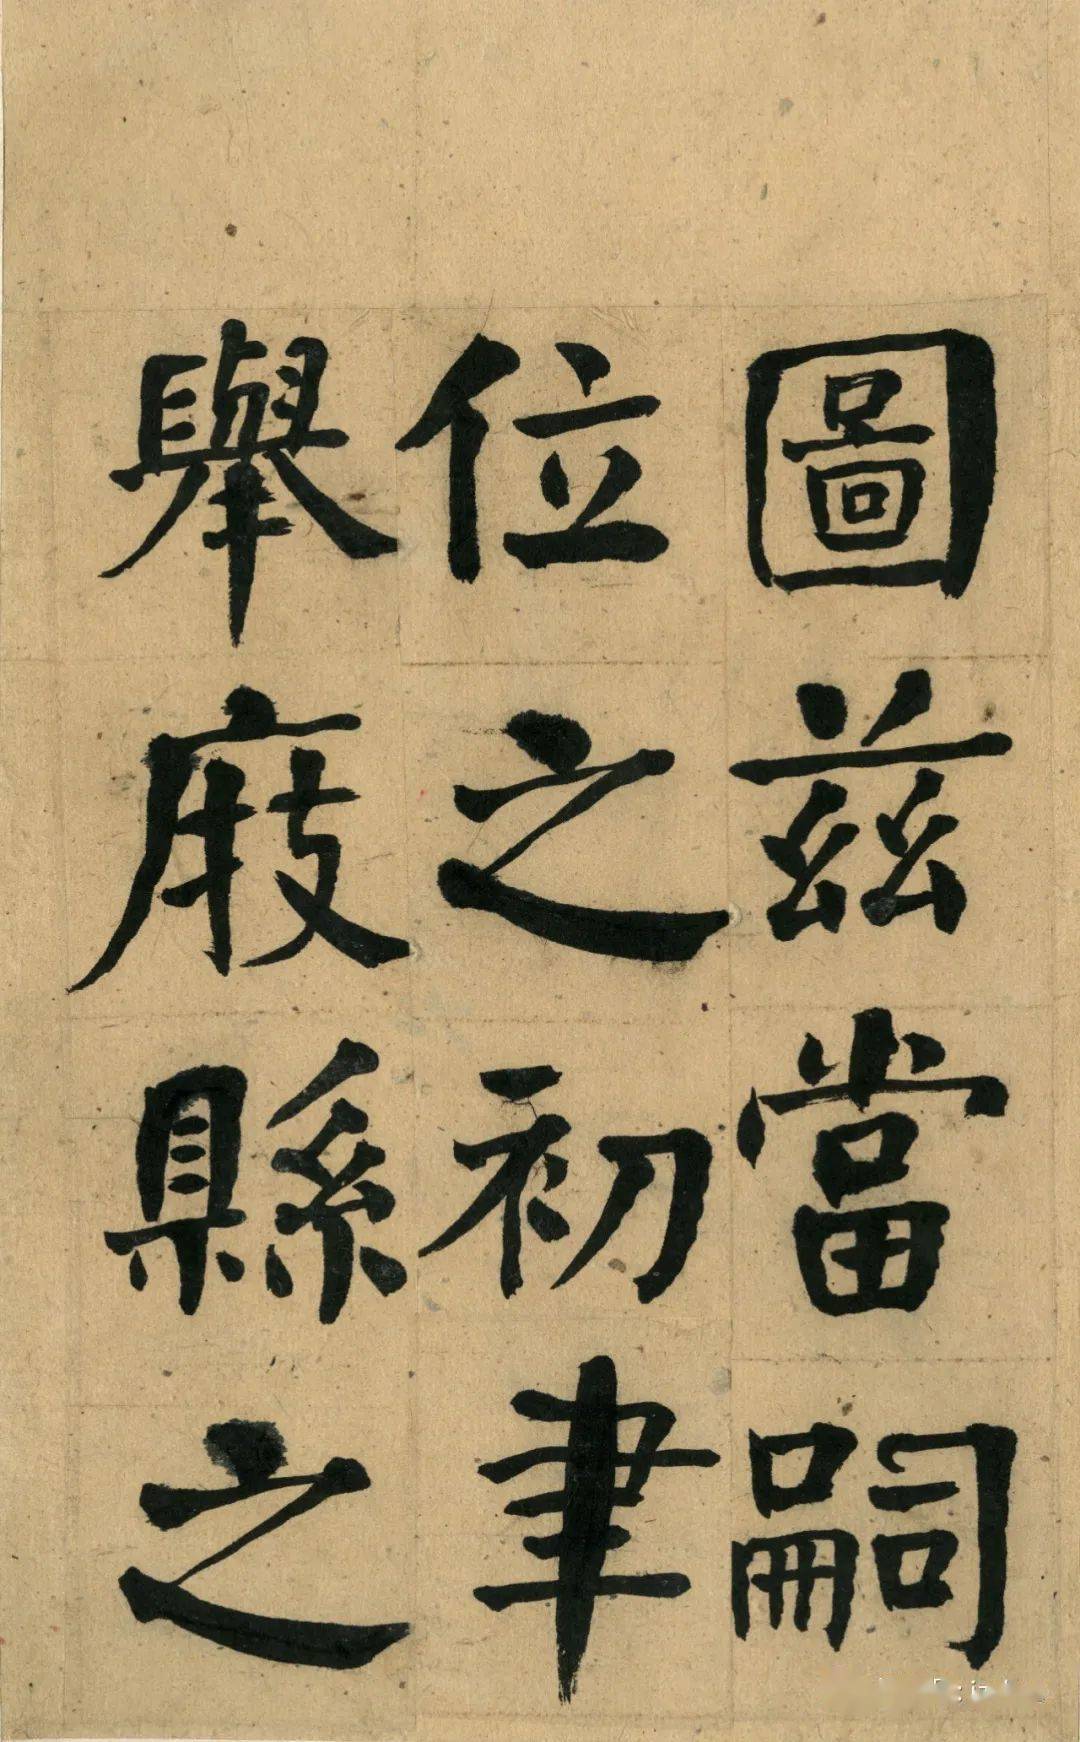 圖茲當嗣
位之初聿
舉庪縣之